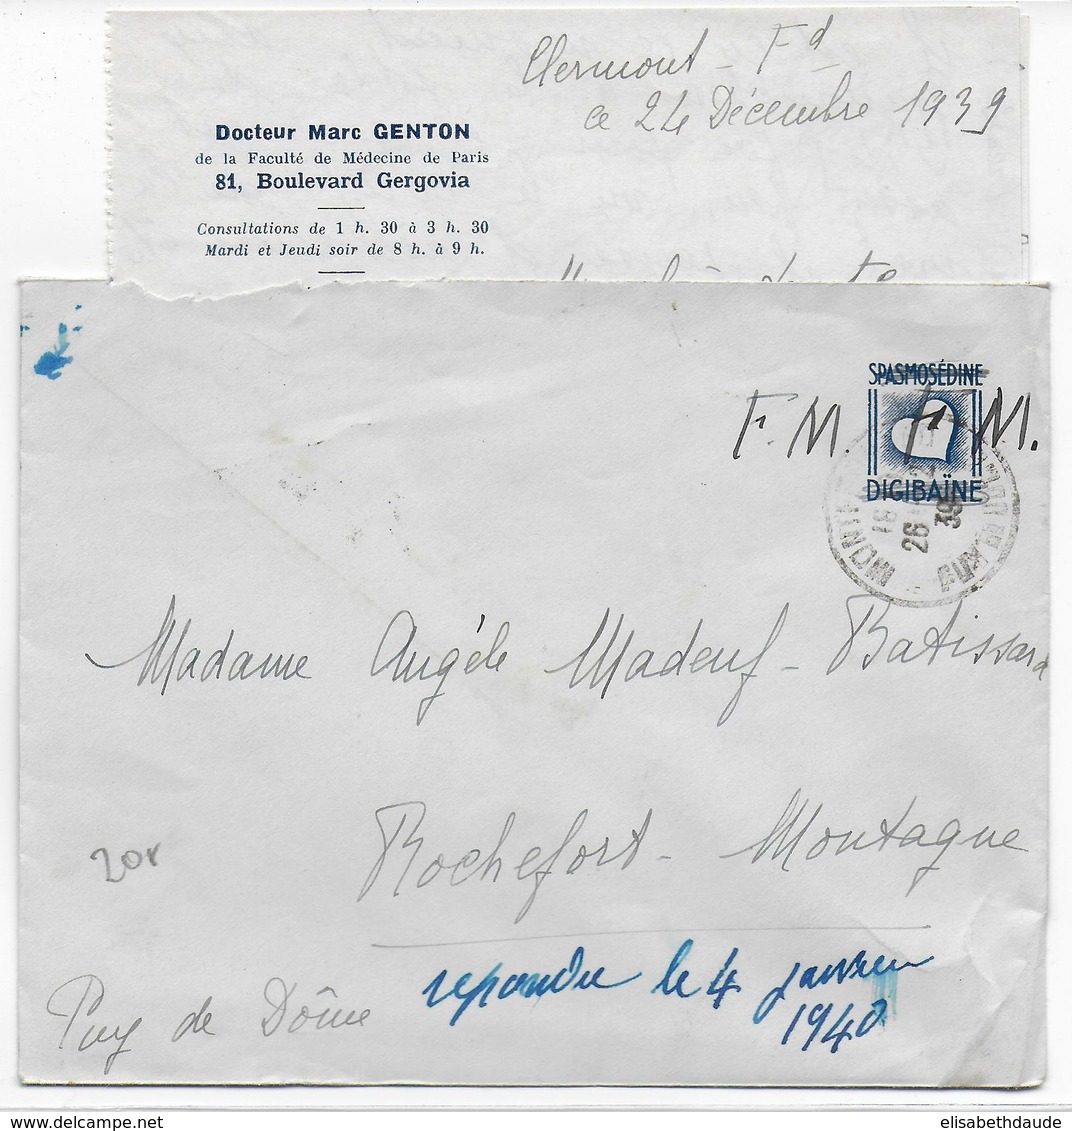 Clermont - Fd
ce 24 Décembre 1939
Docteur Marc GENTON
de la Faculté de Médecine de Paris
81, Boulevard Gergovia
Consultations de 1 h. 30 à 3 h. 30
Mardi et Jeudi soir de 8 h. à 9 h.
SPASMOSÉDINE
F.M. F.M.
DIGIBAÏNE
26
39
PUY DE DOME
Madame Angèle Madeuf - Batissard
Rochefort - Montagne
20r
repondu le 4 janvier
1940
Puy de Dôme
elisabethdaude